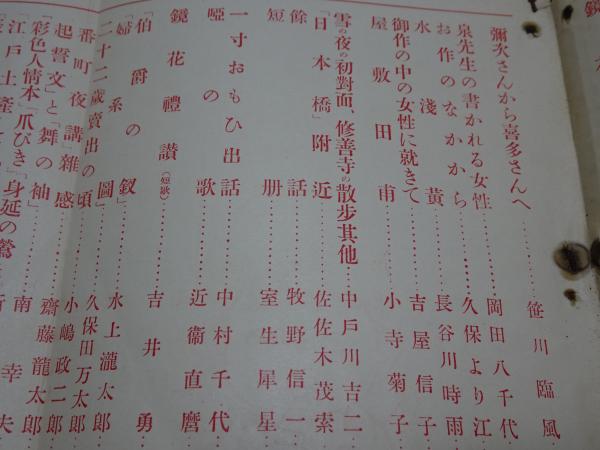 彌次さんから喜多さんへ……………笹川臨風
泉先生の書かれる女性……………岡田八千代
お作のなかから……………久保より江
水淺黄……………長谷川時雨
御作の中の女性に就きて……………吉屋信子
屋敷田甫……………小寺菊子
雪の夜の初對面、修善寺の散步其他……中戸川吉二
「日本橋」附近……………佐佐木茂索
餘話……………牧野信一
短册……………室生犀星
一寸おもひ出話……………中村千代
啞の歌……………近衞直麿
鏡花禮讃(短歌)……………吉井勇
「伯爵の釵」……………水上瀧太郎
「婦系圖」……………久保田万太郎
二十二歲賣出の頃……………小嶋政二郎
番町夜講雜感……………齋藤龍太郎
「起誓文」と「舞の袖」……………南幸夫
「彩色人情本」「爪びき」「身延の鶯」
「江戸土産